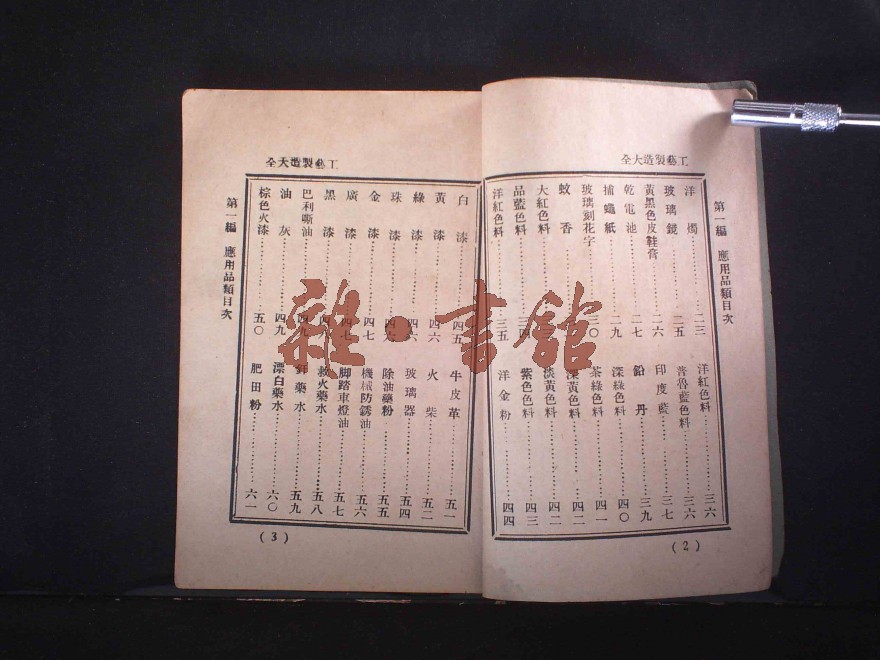 工藝製造大全
第一編　應用品類目次
洋燭……二三
玻璃鏡……二五
黃黑色皮鞋膏……二六
乾電池……二七
捕蠅紙……二九
玻璃刻花字……三〇
蚊香……
大紅色料……
品藍色料……
洋紅色料……三五
洋紅色料……三六
普魯藍色料……三六
印度藍……三七
鉛丹……三九
深綠色料……四〇
茶綠色料……四一
深黃色料……四二
淡黃色料……四二
紫色色料……四三
洋金粉……四四
(2)
工藝製造大全
第一編　應用品類目次
白漆……四五
黃漆……四六
綠漆……四六
珠漆……四六
金漆……四七
廣漆……四七
黑漆……
巴利嘶油……四九
油灰……四九
棕色火漆……五〇
牛皮革……五一
火柴……五二
玻璃器……五四
除油藥粉……五五
機械防銹油……五六
腳踏車燈油……五七
救火藥水……五八
藥水……五九
漂白藥水……六〇
肥田粉……六一
(3)
雜·書館